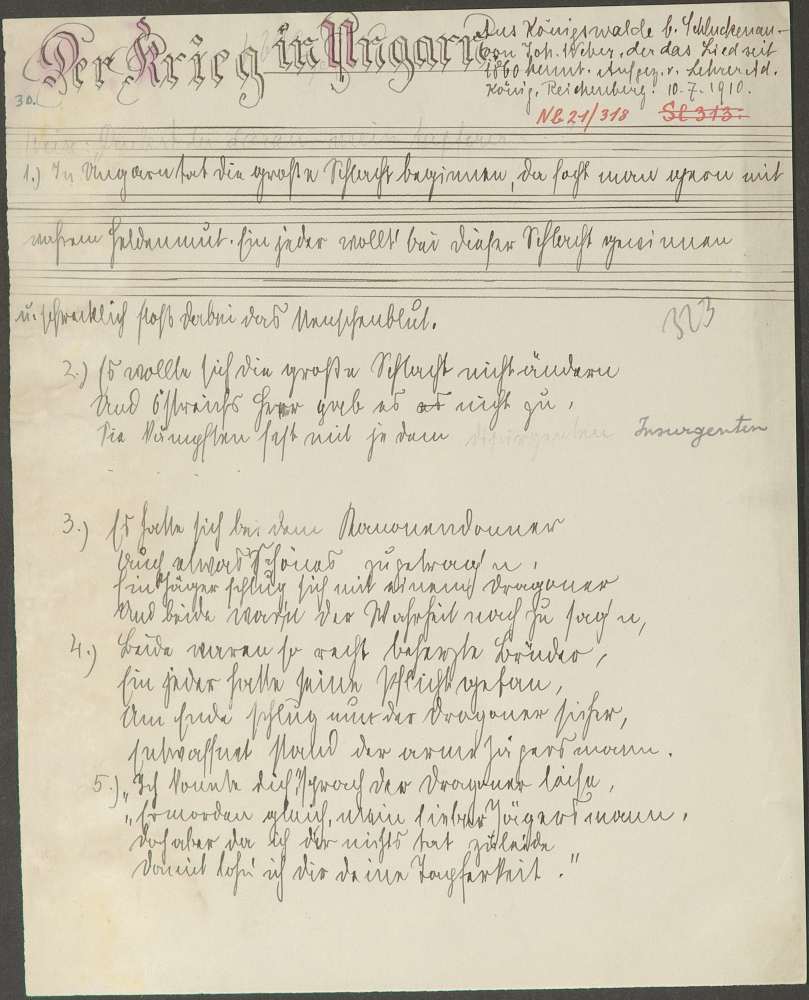 Der Krieg in Ungarn.
Aus Königswalde b. Schluckenau.
Von Joh. Weber, der das Lied seit
1860 kennt. Aufgez. v. Lehrer Ad.
König, Reichenberg. 10.7.1910.
30.
Nb 21/318 Sl 313.
1.) In Ungarn tat die große Schlacht beginnen, da focht man gern mit
wahrem Heldenmut. Ein jeder wollt' bei dieser Schlacht gewinnen
u. schrecklich floß dabei das Menschenblut.
323
2.) Es wollte sich die große Schlacht nicht ändern
Und Östreichs Heer gab es es nicht zu,
Sie kämpften fest mit jedem Insurgenten
3.) Es hatte sich bei dem Kanonendonner
Auch etwas Schönes zugetrag'n,
Ein Jäger schlug sich mit einem Dragoner
Und beide war'n der Wahrheit nach zu sag'n,
4.) Beide waren so recht beherzte Brüder,
Ein jeder hatte seine Pflicht getan,
Am Ende schlug nur der Dragoner sicher,
Entwaffnet stand der arme Jägersmann.
5.) „Ich konnte dich" sprach der Dragoner leise,
„Ermorden gleich, mein lieber Jägersmann,
Doch aber da ich dir nichts tat zuleide
Damit lohn' ich dir deine Tapferkeit."